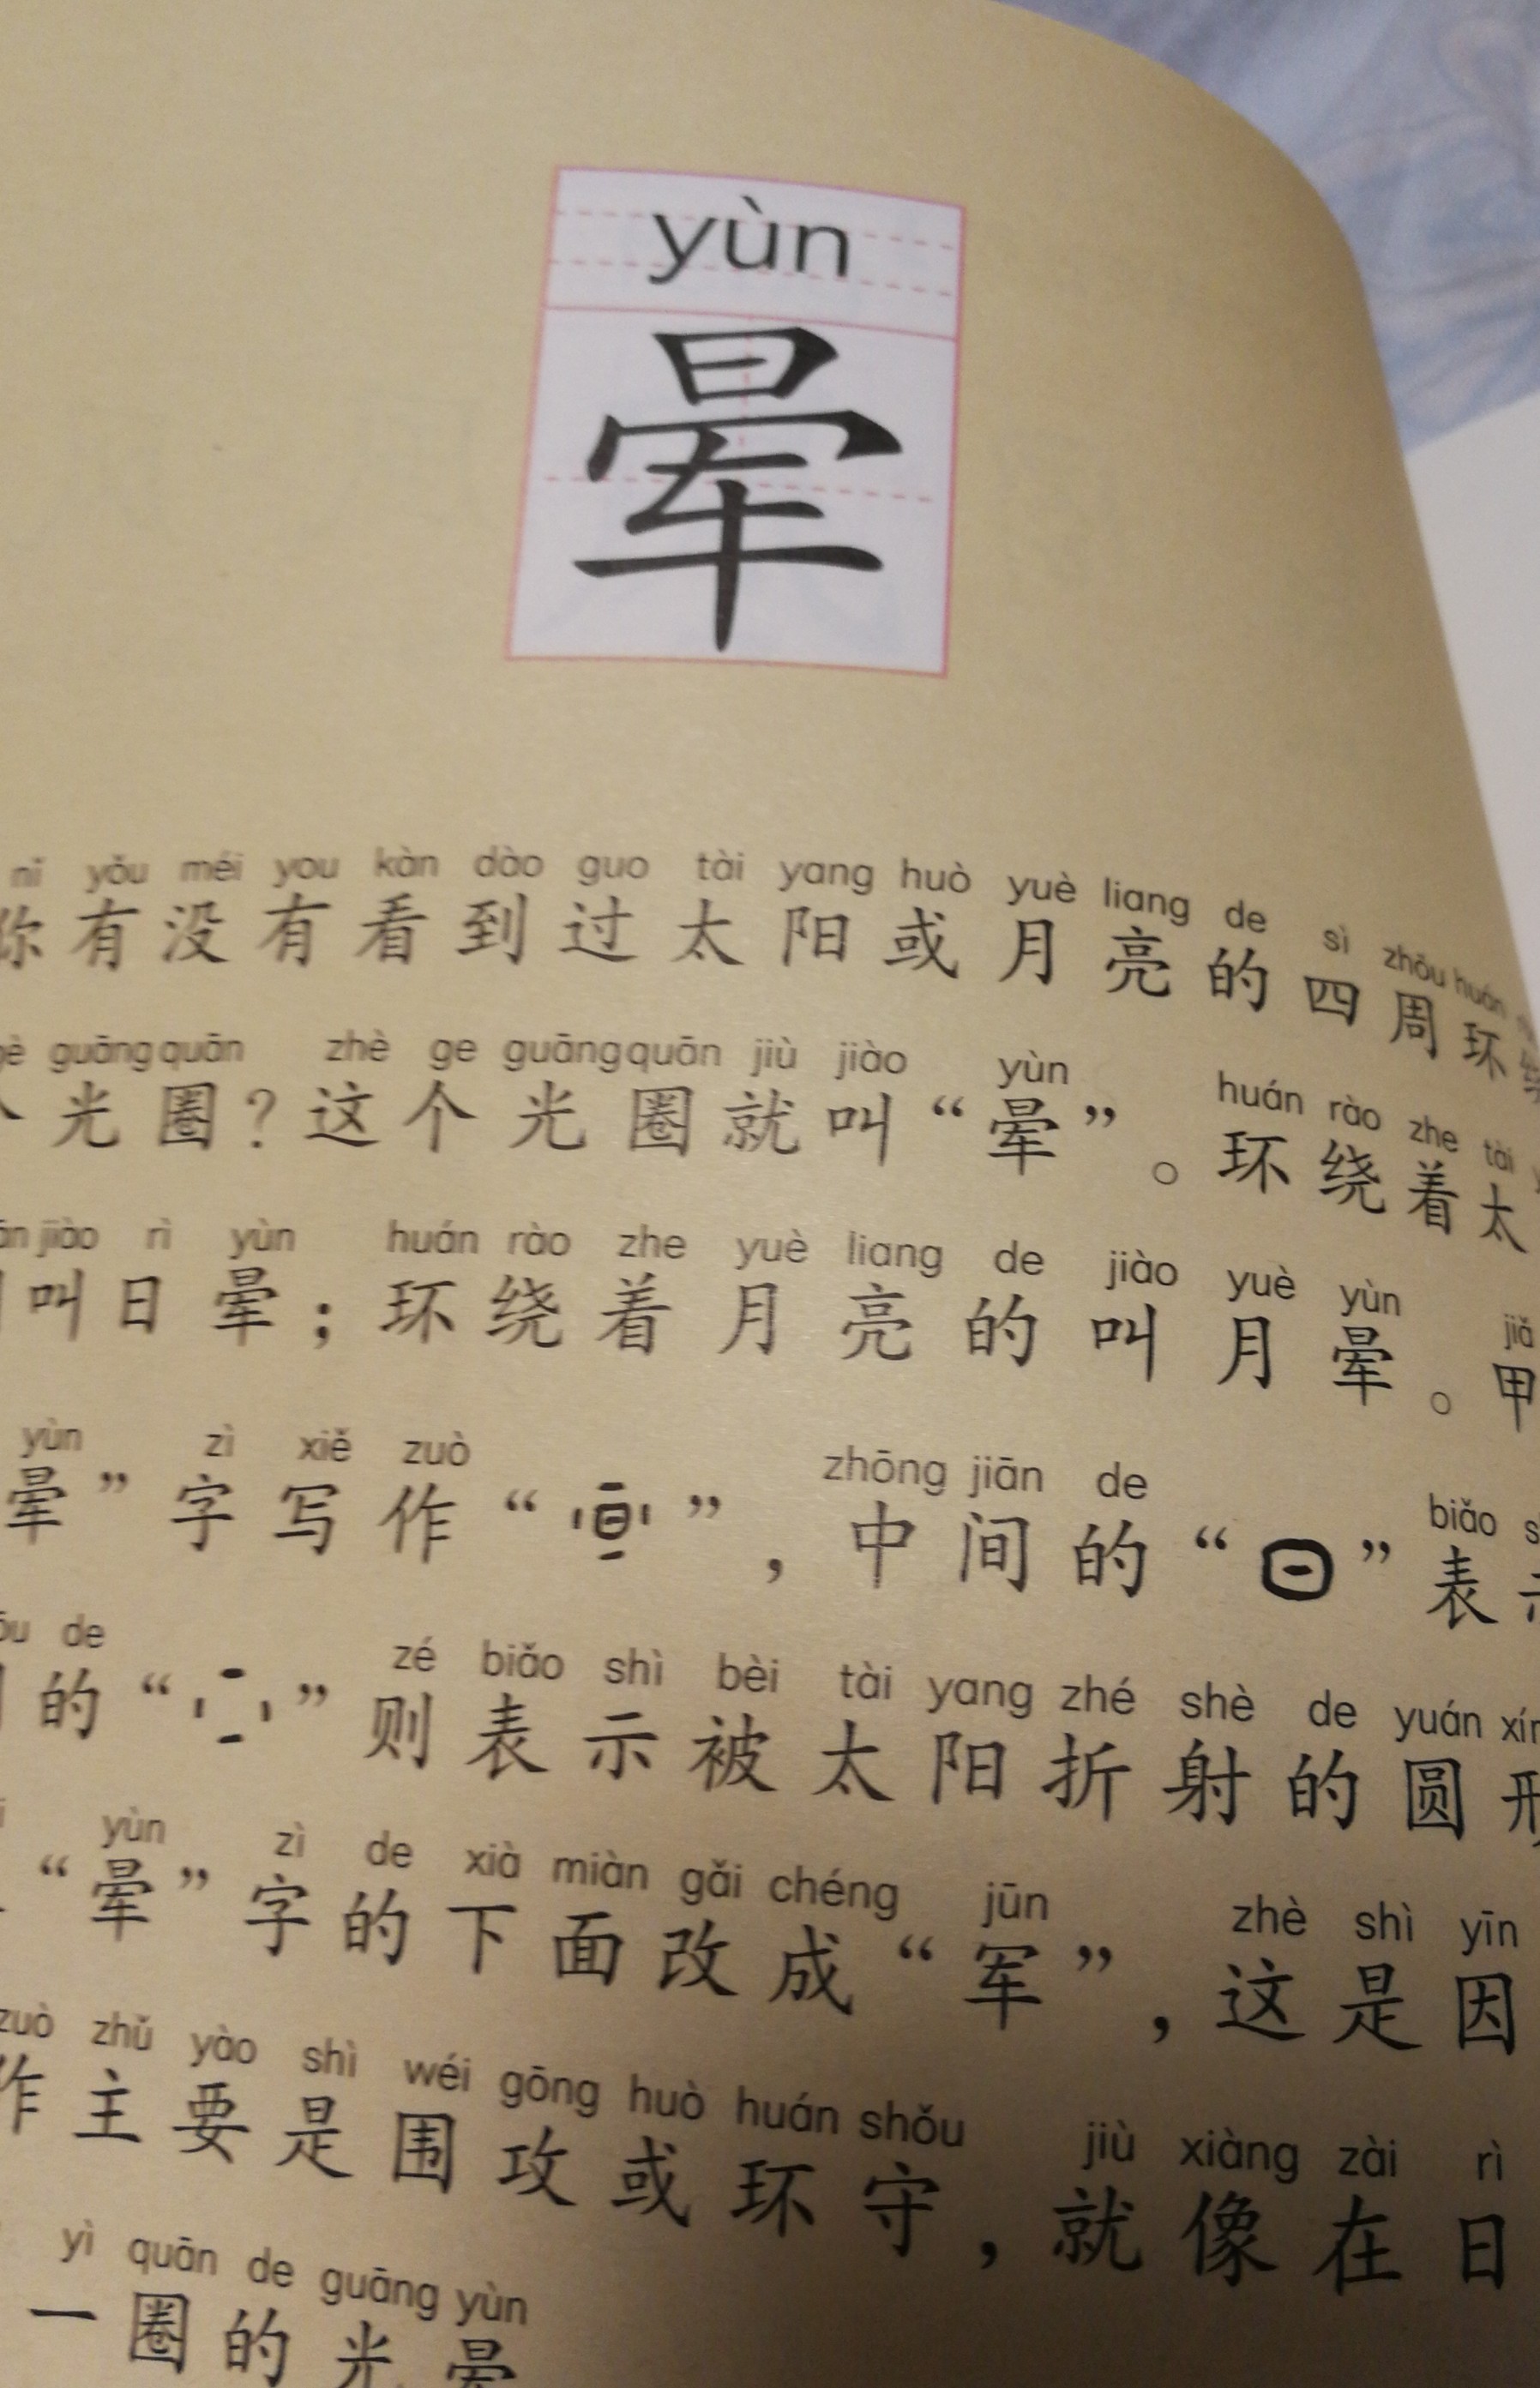 yùn
晕
nǐ yǒu méi you kàn dào guo tài yang huò yuè liang de sì zhōu huán
你有没有看到过太阳或月亮的四周环绕
guāng quān zhè ge guāng quān jiù jiào yùn huán rào zhe tài
光圈？这个光圈就叫“晕”。环绕着太
jiào rì yùn huán rào zhe yuè liang de jiào yuè yùn jiǎ
叫日晕；环绕着月亮的叫月晕。甲
yùn zì xiě zuò zhōng jiān de biǎo
晕”字写作“”，中间的“”表
de zé biǎo shì bèi tài yang zhé shè de yuán
的“”则表示被太阳折射的圆形
yùn zì de xià miàn gǎi chéng jūn zhè shì yīn
“晕”字的下面改成“军”，这是因
zuò zhǔ yào shì wéi gōng huò huán shǒu jiù xiàng zài rì
作主要是围攻或环守，就像在日
yì quān de guāng yùn
一圈的光晕